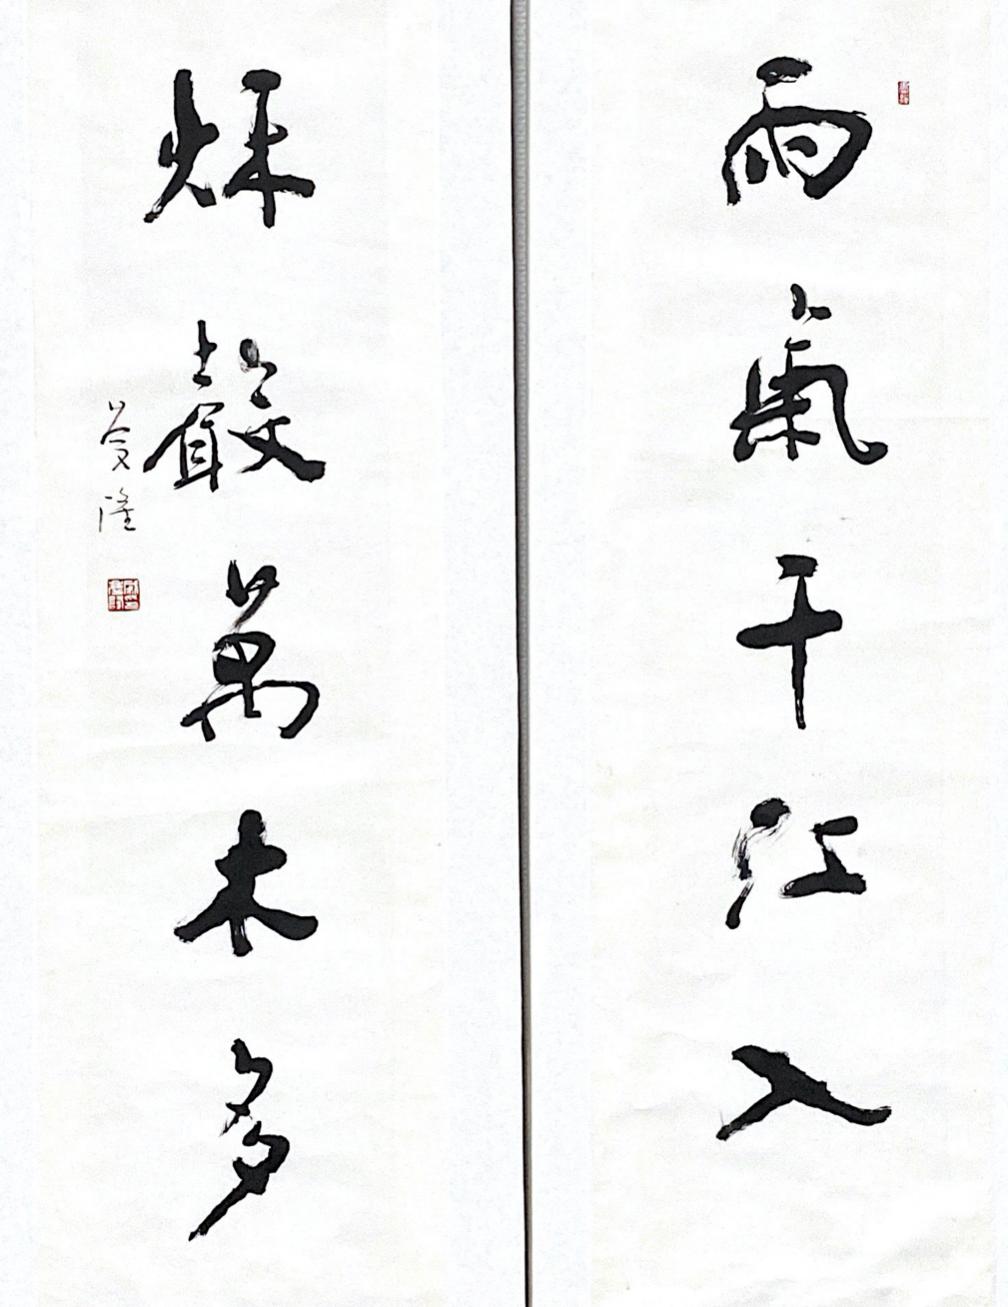 雨氣千江入
秌聲萬木多
隆